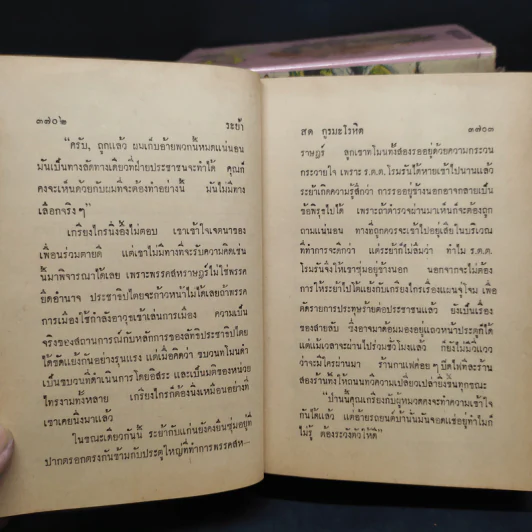 ๓๗๐๒
ระย้า
"ครับ, ถูกแล้ว ผมเก็บอ้ายพวกนี้หมดแน่นอน
มันเป็นทางลัดทางเดียวที่ฝ่ายประชาชนจะทำได้ คุณก็
คงจะเห็นด้วยกับผมที่จะต้องทำอย่างนี้ มันไม่มีทาง
เลือกจริงๆ"
เกรียงไกรนิ่งอึ้งไม่ตอบ เขาเข้าใจเจตนาของ
เพื่อนร่วมตายดี แต่เขาไม่มีทางที่จะรับความคิดเช่น
นั้นมาพิจารณาได้เลย เพราะพรรคสหราษฎร์ไม่ใช่พรรค
ยึดอำนาจ ประชาธิปไตยจะก้าวหน้าไม่ได้เลยถ้าพรรค
การเมืองใช้กำลังอาวุธเข้าเล่นการเมือง ความเป็น
จริงของสถานการณ์กับหลักการของลัทธิประชาธิปไตย
ได้ขัดแย้งกันอย่างรุนแรง แต่เมื่อคิดว่า ขบวนที่ไมนดำ
เป็นขบวนที่ดำเนินการโดยอิสระ และเป็นมติของหน่วย
ไทรงามทั้งหลาย เกรียงไกรก็ต้องนิ่งเหมือนอย่างที่
เขาเคยนิ่งมาแล้ว
ในขณะเดียวกันนี้ ระย้ากับแก่นยังคงยืนซุ่มอยู่ที่
ปากตรอกตรงกันข้ามกับประตูใหญ่ที่ทำการพรรคสห-
สด กูรมะโรหิต
๓๗๐๓
ราษฎร์ ลูกเขาไมนทั้งสองรออยู่ด้วยความกระวน
กระวายใจ เพราะ ร.ต.ต. โรมรันได้หายเข้าไปนานแล้ว
ระย้าเกิดความรู้สึกว่า การรออยู่ข้างนอกอาจกลายเป็น
ข้อพิรุธไปได้ เพราะถ้าตำรวจผ่านมาเห็นก็จะต้องถูก
ถามแน่นอน ทางที่ถูกควรจะเข้าไปอยู่เสียในบริเวณ
ที่ทำการจะดีกว่า แต่ระย้าก็ไม่ลืมว่า ทำไม ร.ต.ต.
โรมรันจึงให้เขาซุ่มอยู่ข้างนอก นอกจากจะไม่ต้อง
การให้ระย้าไปได้แย้งกับเกรียงไกรเรื่องแผนจู่โจม เพื่อ
ตัดรายการประทุษร้ายต่อประชาชนแล้ว ยังเป็นเรื่อง
ของสายลับ ซึ่งอาจมาด้อมมองอยู่แถวหน้าประตูก็ได้
แต่แม้เวลาจะผ่านไปร่วมชั่วโมงแล้ว ก็ยังไม่มีวี่แวว
ว่าจะมีใครผ่านมา ร้านกาแฟค่อยๆ ปิดไฟทีละร้าน
สองร้านทิ้งให้ถนนทวีความเปลี่ยวเปล่ายิ่งขึ้นทุกขณะ
"ป่านนี้คุณเกรียงกับผู้หมวดคงจะทำความเข้าใจ
กันได้แล้ว แต่อ้ายรถยนต์บ้านั้นมันจอดแช่อยู่ทำไมก็
ไม่รู้ ต้องระวังตัวให้ดี"